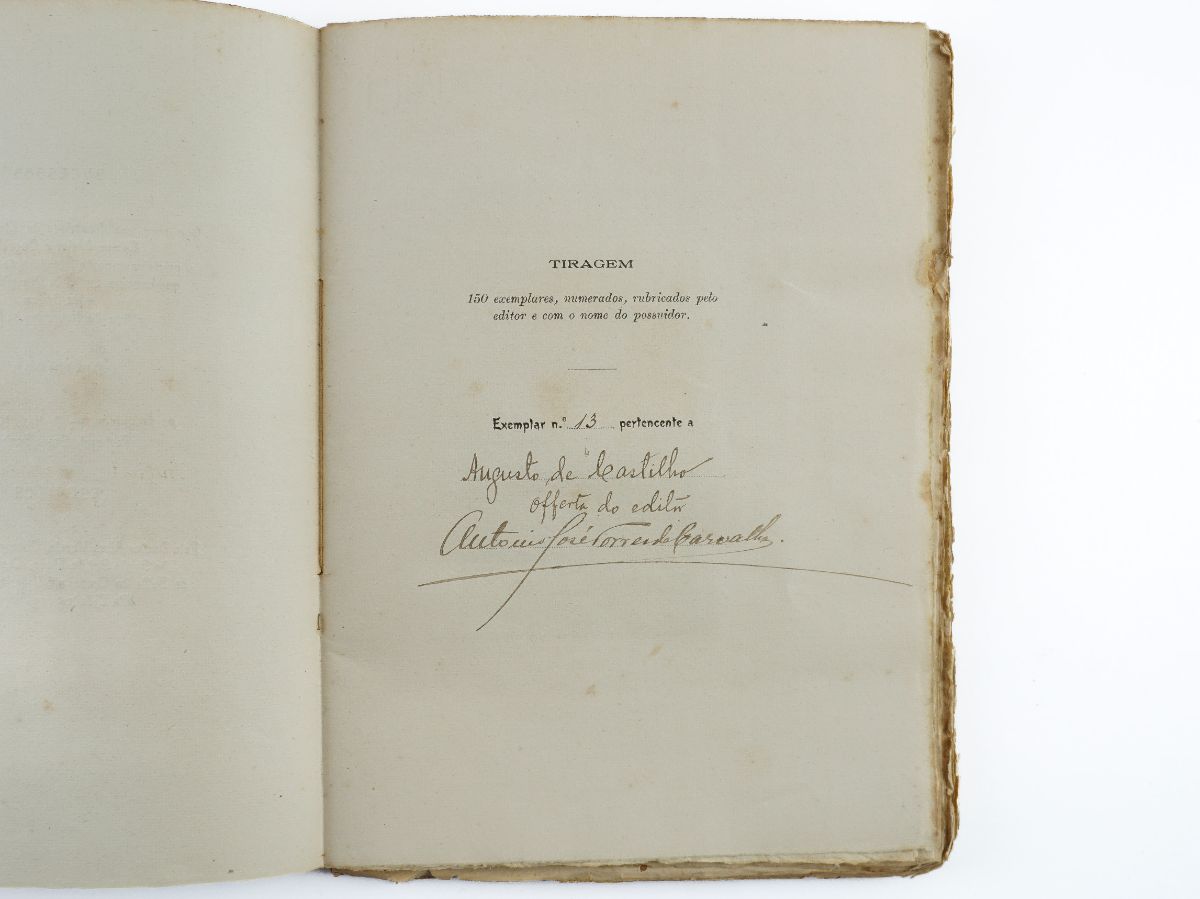 TIRAGEM
150 exemplares, numerados, rubricados pelo
editor e com o nome do possuidor.
Exemplar n.º 13 pertencente a
Augusto de Castilho
offerta do editor
Antonio José Torres de Carvalho.